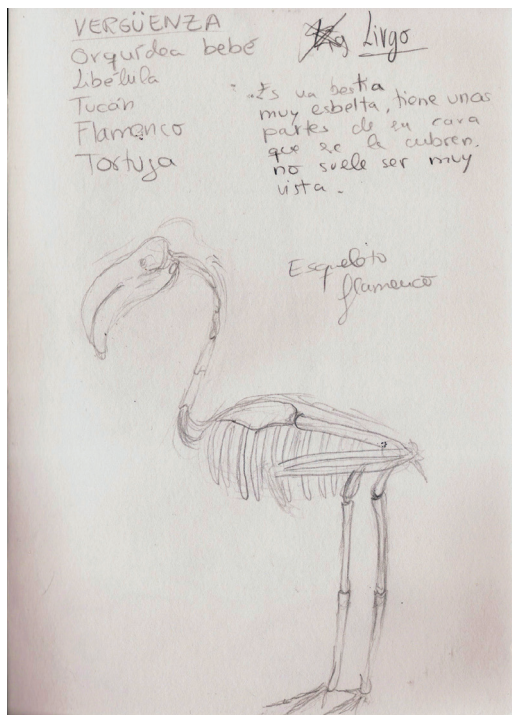 VERGÜENZA
Orquídea bebé
Libélula
Tucán
Flamenco
Tortuga
Livgo
Es un bestia
muy esbelta, tiene unas
partes de su cara
que se le cubren.
no suele ser muy
vista.
Esqueleto
flamenco